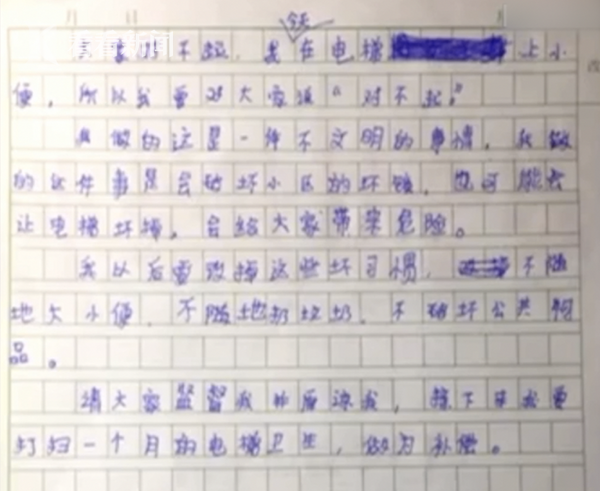 钮
对不起，我在电梯上小
便，所以我要对大家说“对不起”
我做的这是一件不文明的事情，我做
的这件事是会破坏小区的环境，也可能会
让电梯坏掉，会给大家带来危险。
我以后要改掉这些坏习惯，不随
地大小便，不随地扔垃圾，不破坏公共物
品。
请大家监督我并原谅我，接下来我要
打扫一个月的电梯卫生，做为补偿。